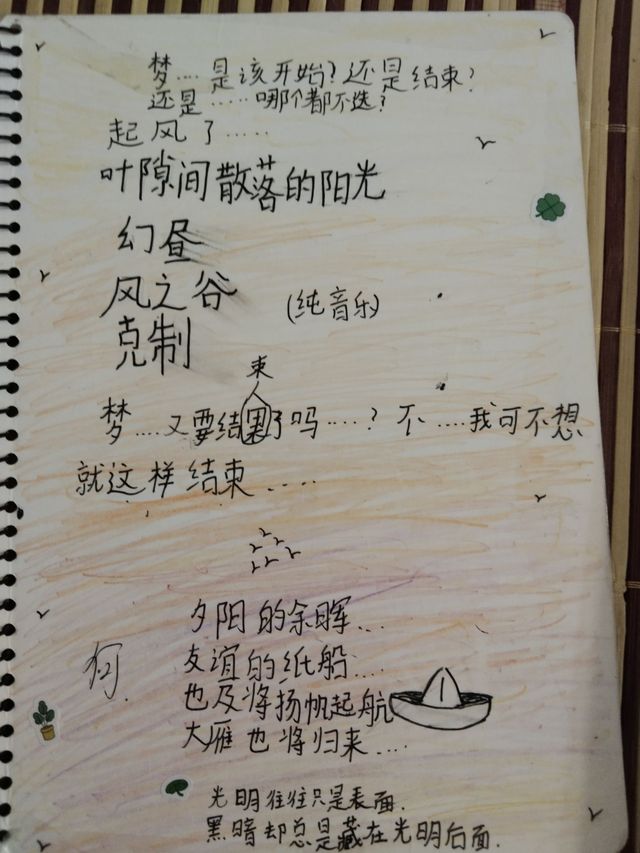 梦....是该开始?还是结束?
还是.....哪个都不选?
起风了.....
叶隙间散落的阳光
幻昼
风之谷 (纯音乐)
克制
束
梦....又要结果了吗....? 不....我可不想
就这样结束....
夕阳的余晖...
友谊的纸船...
也及将扬帆起航
大雁也将归来....
光明往往只是表面.
黑暗却总是藏在光明后面.